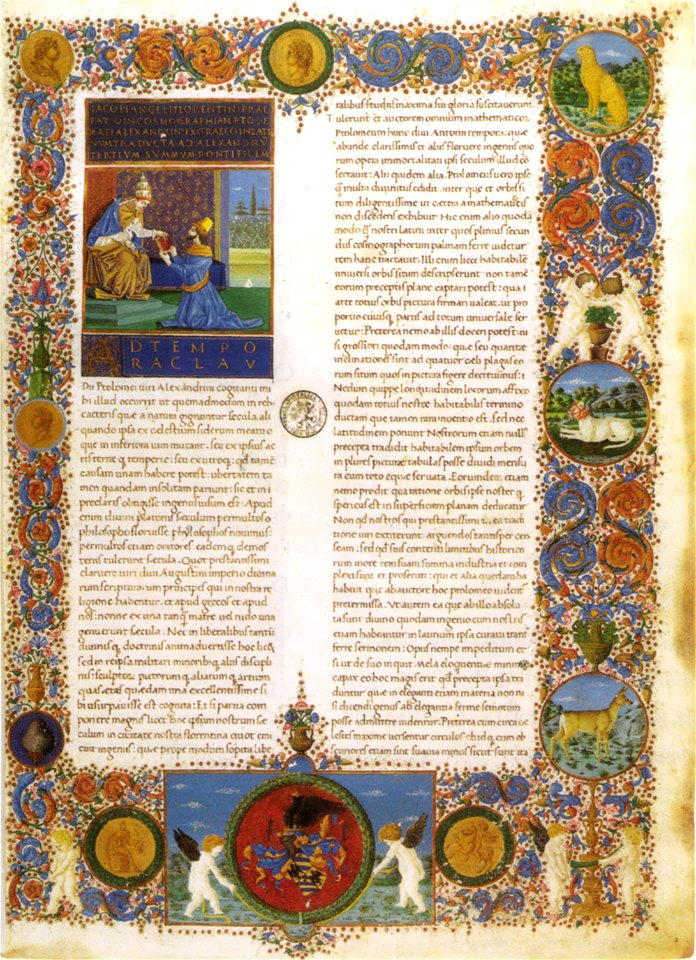 IACOPI ANGELI FLORENTINI PRAE
IN COSMOGRAPHIAM PTOLE
MAEI ALEXANDRIN' EX GRAECO IN LATI
NVM TRADVCTA AD ALEXANDRV
TERTIVM SVMMVM PONTIFICEM
AD TEMPO
RA CLAV
Dii Ptolomei viri Alexandrini cogitanti mi
hi illud occurrit ut quemadmodum in reb.
cæteris quæ a natura gignuntur sæcula ali
quando ipsa ex cœlestium siderum meatu
quæ in inferiora vim mutant. seu ex ipsius ae
ris temperie: seu ex utroq;
causam unam habere potest: ubertatem ta
men quandam insolitam pariunt: sic et in
preclaris obtigisse ingeniis visum est. Apud
enim divum platonis sæculum permultos
philosopho floruisse phylosophos novimus:
permultos etiam oratores. eadem q; demos
tenis tulerunt sæcula. Quot prestantissimi
claruere viri divi Augustini imperio divina
rum scripturarum principes qui in nostra re
ligione habentur. et apud grecos et apud
nos: nonne ex una tanq; matre vel nido una
genuerunt sæcula: Nec in liberalibus tantu
divinisq; doctrinis animadvertisse hoc licet
sed in re ipsa militari minorib.q; aliis discipli
nis: sculptor. pictorum q; aliarum q; artium
quas ætas quædam una excellentissime si
bi usurpavisse est cognita: Et si parva com
ponere magnis licet hoc ipsum nostrum sæ
culum in civitate nostra florentina quot emi
cuit ingeniis: quæ prope modum sopita libe
ralibus studiis maxima sui gloria suscitaverunt.
Tulerunt et auctorem omnium mathematicor.
Ptolomeum hunc divi Antonii tempora: quæ
abunde clarissimis et aliis floruere ingeniis quo
rum opera immortalitati ipsi sæculum illud co
secravit: Alii quidem alia. Ptolomeus vero ipse
q; multa divinitus edidit. inter quæ et orbis si
tum diligentissime ut cætera a mathematicis
non discedens exhibuit: Hic enim alio quoda
modo nostri latini: inter quos plinius secun
dus cosmographorum palmam ferre videtur
rem hanc tractavit: Illi enim licet habitabile
universi orbis situm descripserunt. non tamē
eorum preceptis plane captari potest: qua
arte totius orbis pictura firmari valeat. ut pro
portio cuiusq; partis ad totum universale ser
vetur: Preterea nemo ab illis doceri potest. ni
si grossiori quodam modo: quæ seu quantæ
inclinationes sint ad quatuor celi plagas eo
rum situum quos in pictura figere decrevimus:
Nedum quippe longitudinem locorum affixo
quodam totius nostræ habitabilis termino
ductam quæ tamen rara inventio est. sed nec
latitudinem ponunt: Nostrorum etiam nulli
precepta tradidit habitabilem ipsum orbem
in plures picturæ tabulas posse dividi mensu
ra cum toto eque servata. Eorumdem etiam
nemo prodit qua ratione orbis ipse noster q
spericus est in superficiem planam deducatur
Non nostros qui prestantissimi i. ea tradi
tione viri extiterunt: arguendos tantisper cen
seam: sed sui contenti limitibus historico
rum more rem suam summa industria et com
plexi sunt et prosecuti: qui et alia quædam ha
buerit quæ ab auctore hoc ptolomeo videntur
pretermissa: Ut autem ea quæ ab illo absolu
ta sunt divino quodam ingenio cum nostris
etiam habeantur in latinum ipsa curavi trans
ferre sermonem: Opus nempe impeditum et
si ut de suo inquit Mela eloquentiæ minime
capax eo hoc magis erit precepta ipsa tra
duntur: quæ in eleganti etiam materia non ni
si dicendi genus ab elegantia ferme semotum
posse admittere videntur. Preterea cum circa cæ
lestes maxime versentur circulos: cum ob
scuriores etiam sunt suavia minus sicut sunt ita